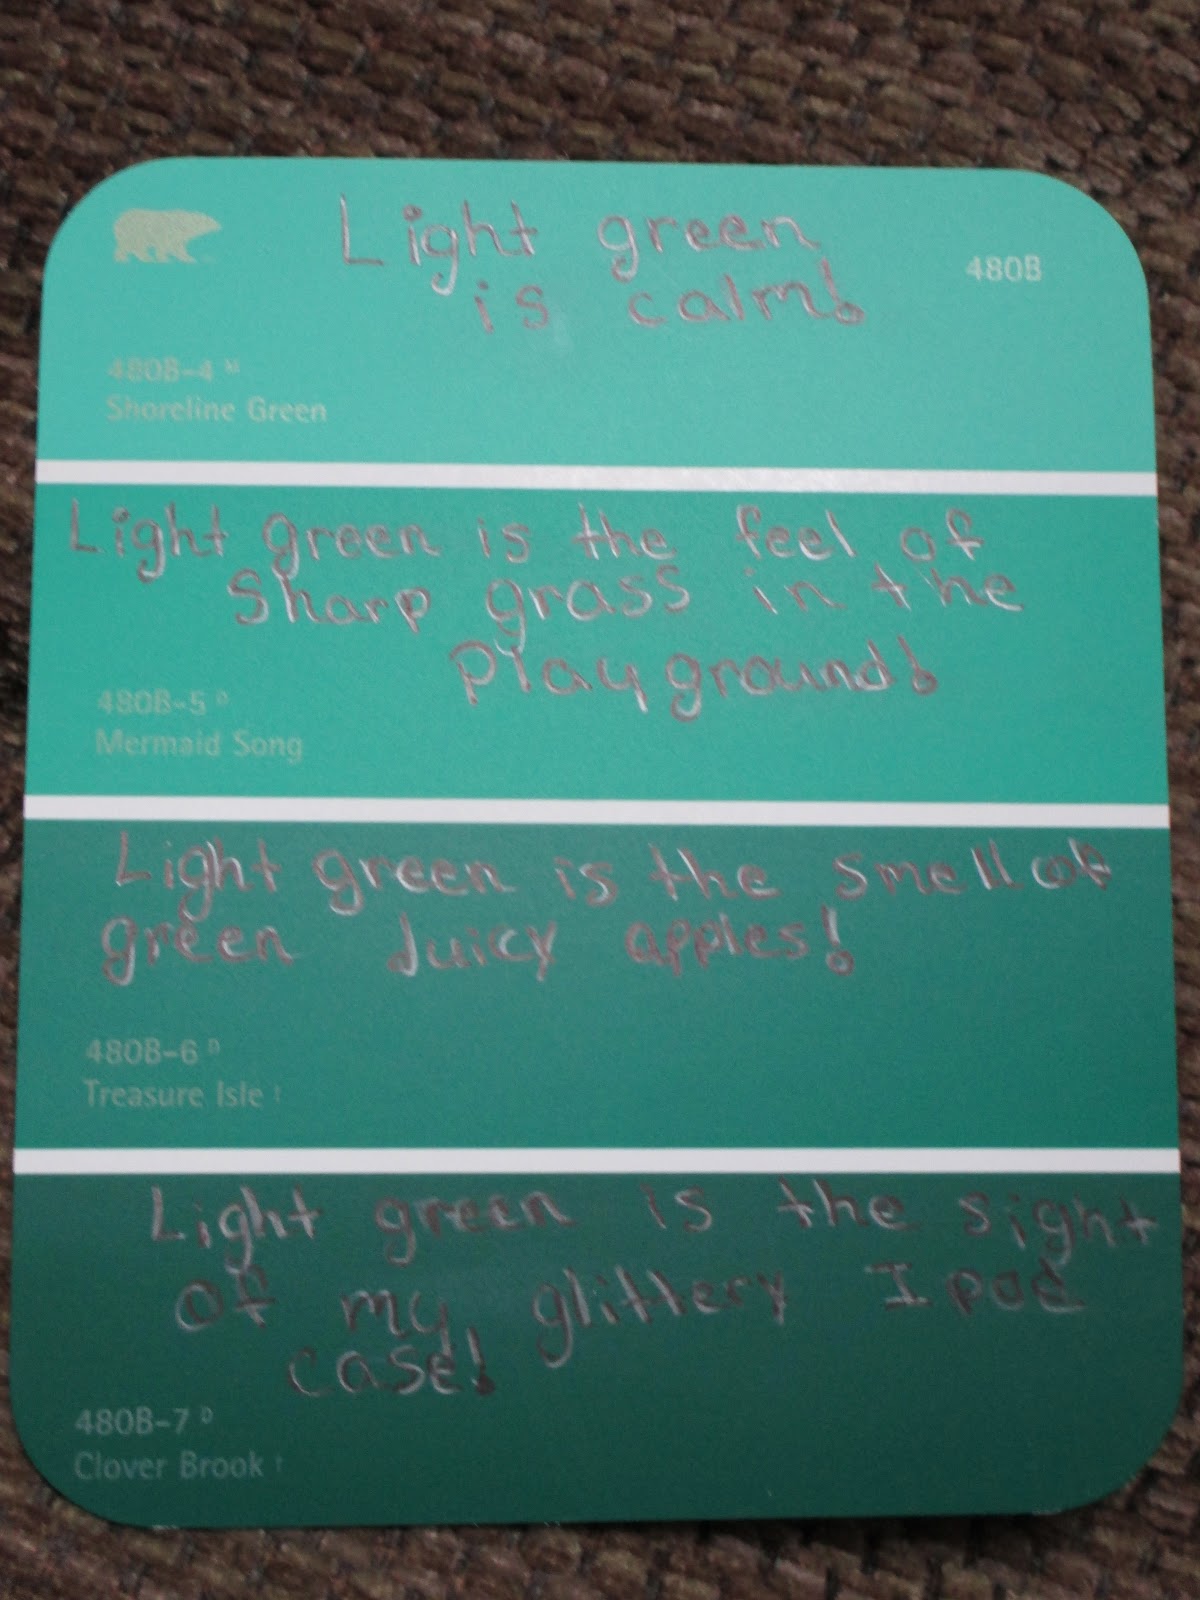 Light green
is calm!
480B
480B-4 M
Shoreline Green
Light green is the feel of
Sharp grass in the
Playground!
480B-5 D
Mermaid Song
Light green is the smell of
green Juicy apples!
480B-6 D
Treasure Isle †
Light green is the sight
of my glittery Ipod
case!
480B-7 D
Clover Brook †